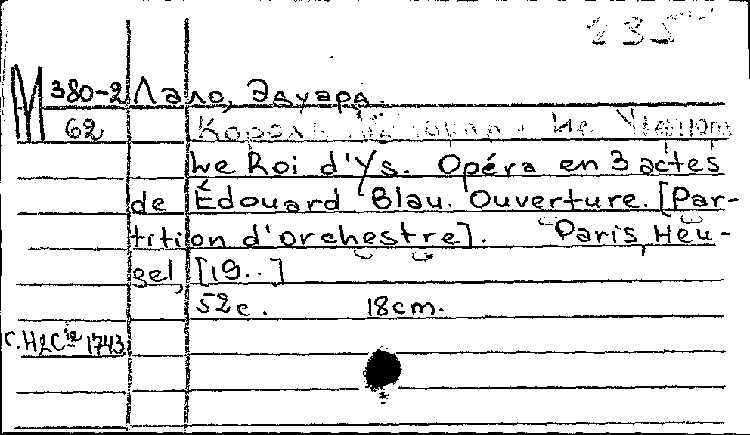 235
М 380-2 Лало, Эдуард.
62 Король
Le Roi d'Ys. Opéra en 3 actes
de Édouard Blau. Ouverture. [Par-
tition d'orchestre]. Paris, Heu-
gel, [19..]
52c. 18cm.
С. H&Cie 1743